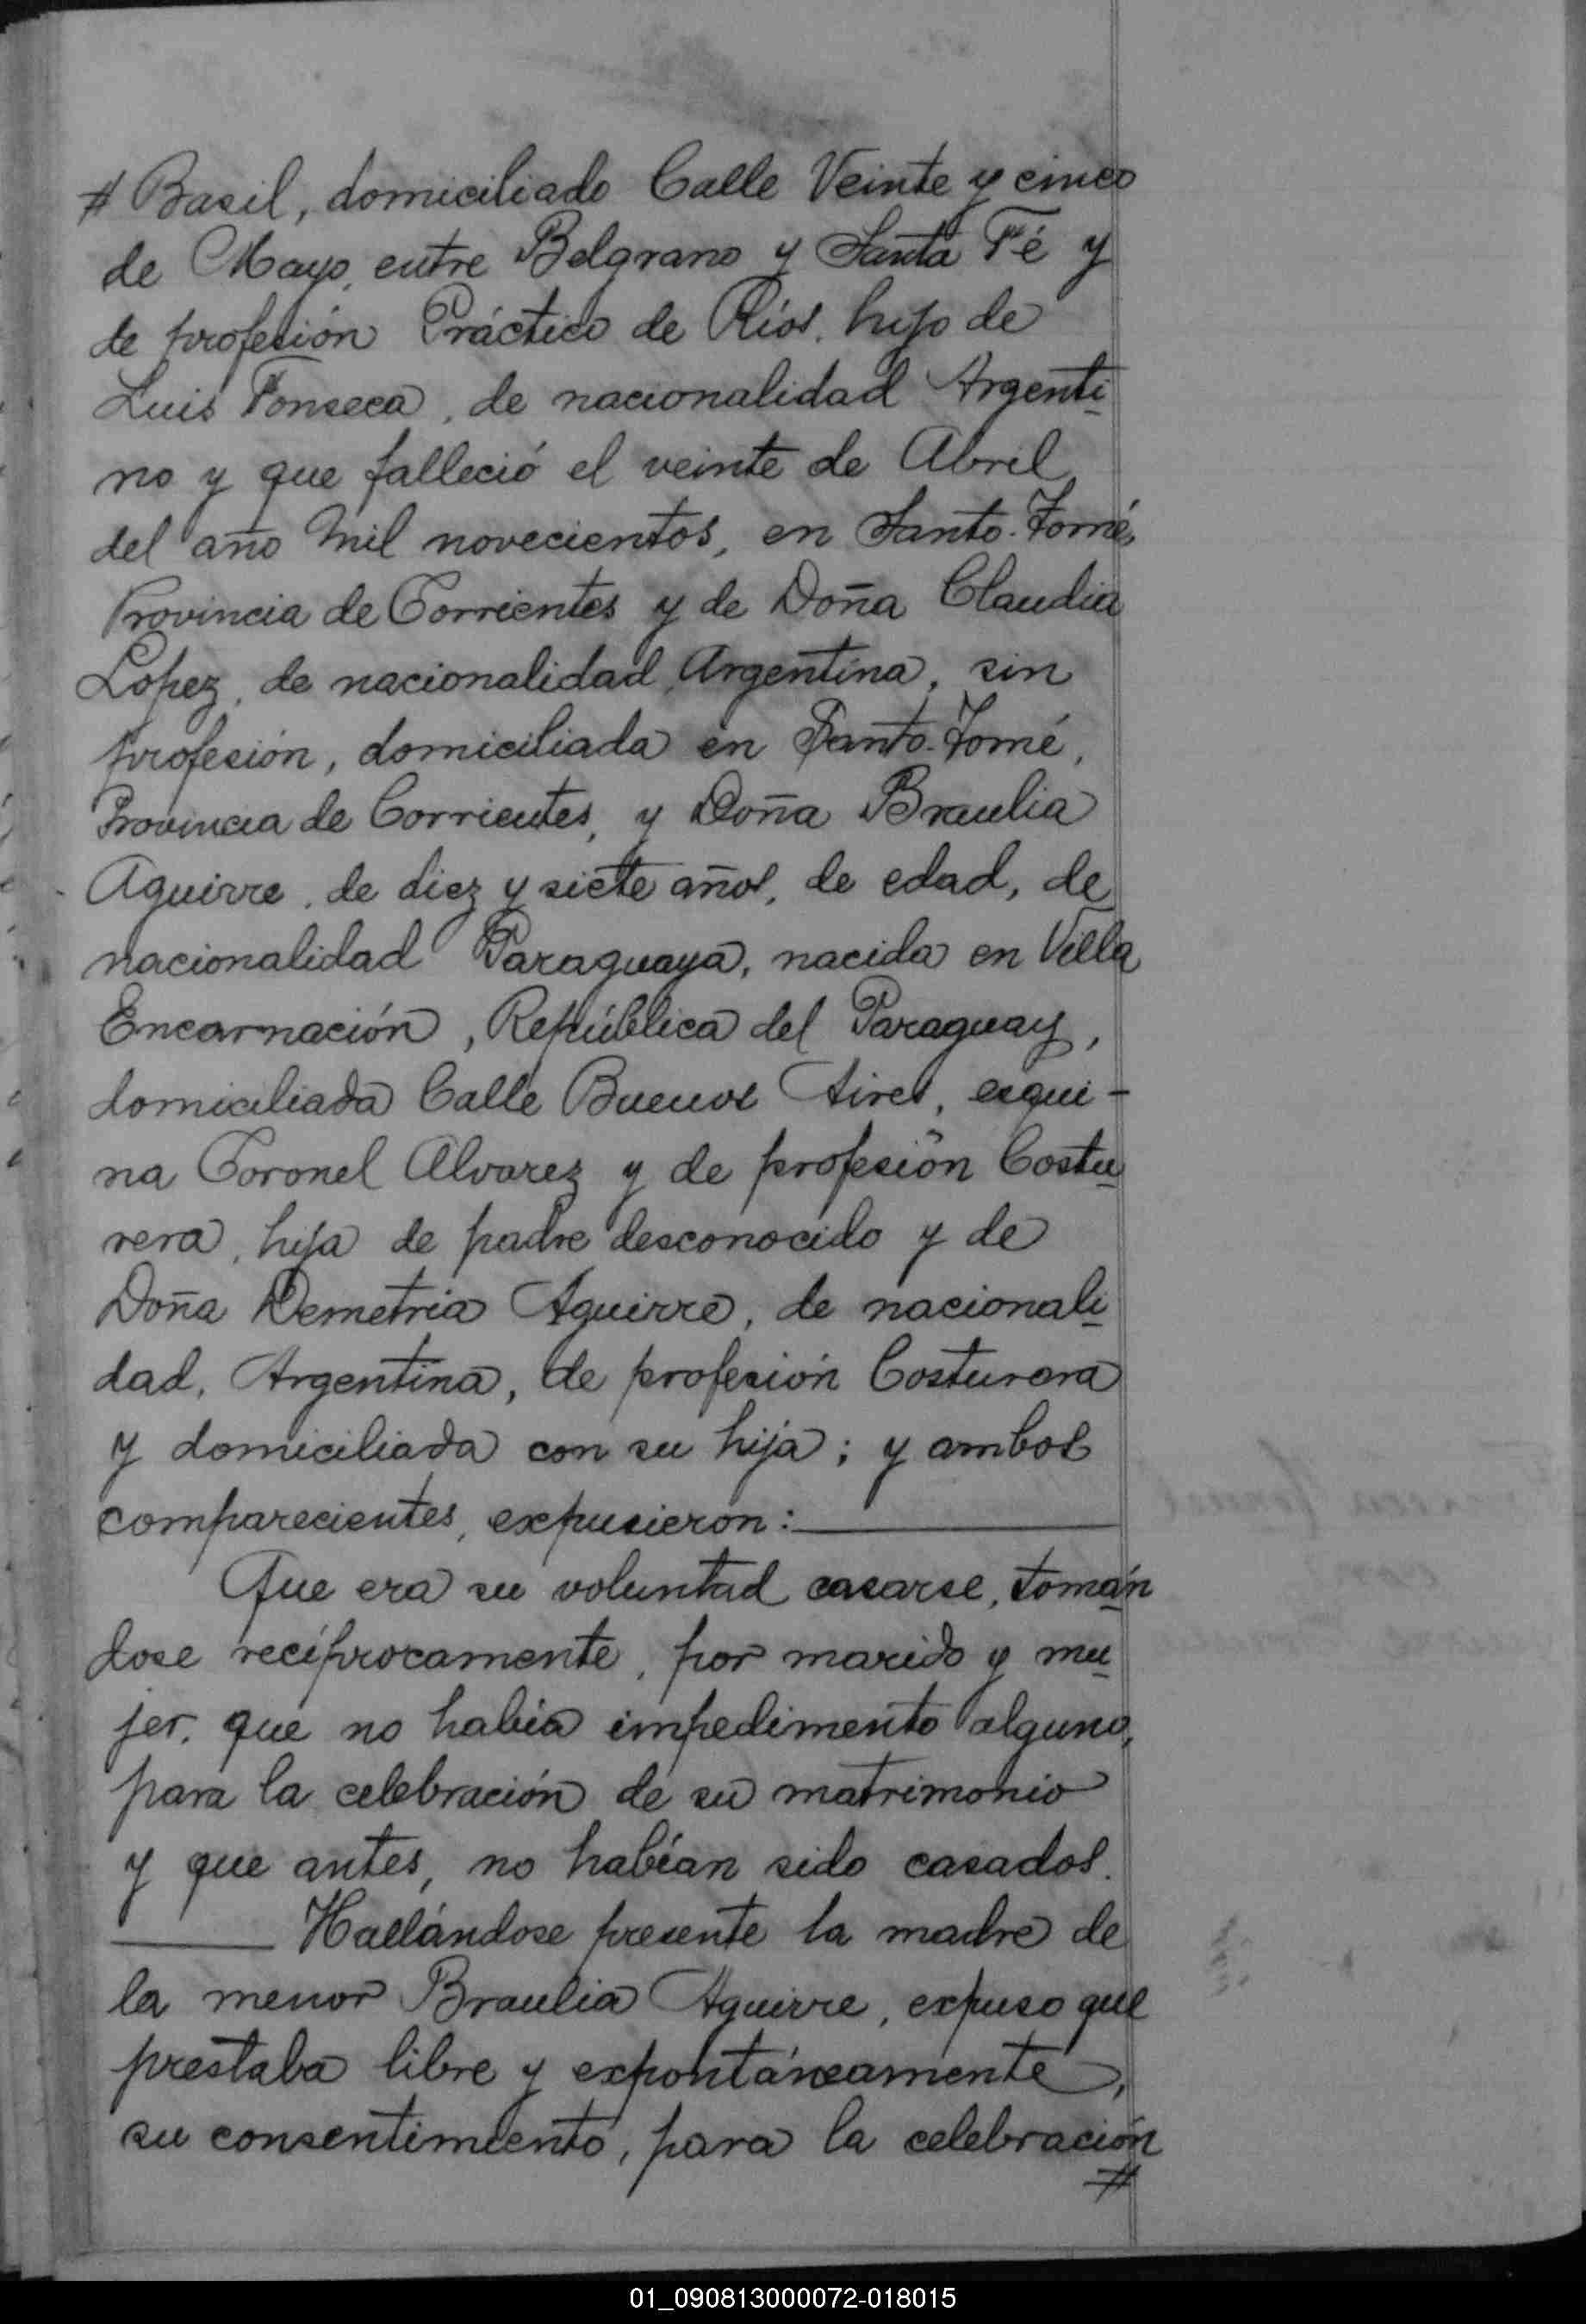 # Basil, domiciliado Calle Veinte y cinco
de Mayo, entre Belgrano y Santa Fé y
de profesión Práctico de Ríos, hijo de
Luis Fonseca, de nacionalidad Argenti-
no y que falleció el veinte de Abril
del año mil novecientos, en Santo-Tomé,
Provincia de Corrientes y de Doña Claudia
Lopez, de nacionalidad, Argentina, sin
profesión, domiciliada en Santo-Tomé,
Provincia de Corrientes, y Doña Braulia
Aguirre, de diez y siete años, de edad, de
nacionalidad Paraguaya, nacida en Villa
Encarnación, República del Paraguay,
domiciliada Calle Buenos Aires, esqui-
na Coronel Alvarez y de profesión Costu-
rera, hija de padre desconocido y de
Doña Demetria Aguirre, de nacionali-
dad, Argentina, de profesión Costurera
y domiciliada con su hija; y ambos
comparecientes, expusieron:
Que era su voluntad casarse, toman-
dose recíprocamente, por marido y mu-
jer, que no había impedimento alguno,
para la celebración de su matrimonio
y que antes, no habían sido casados.
Hallándose presente la madre de
la menor Braulia Aguirre, expuso que
prestaba libre y expontáneamente,
su consentimiento, para la celebración
#
01_090813000072-018015